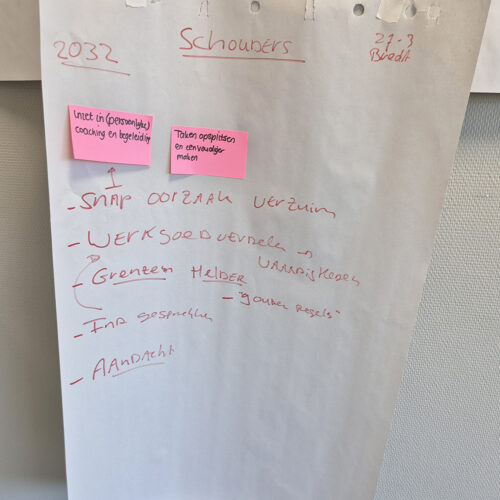 2032
Schouders
27-3
Inzet in (persoonlijke)
coaching en begeleiding
Taken opsplitsen
en eenvoudiger
maken
- SNAP OORZAAK VERZUIM
- WERK GOED VERDELEN →
VAARDIGHEDEN
- Grenzen HELDER
- "gouden Regels"
- IND gesprekken
- AANDACHT